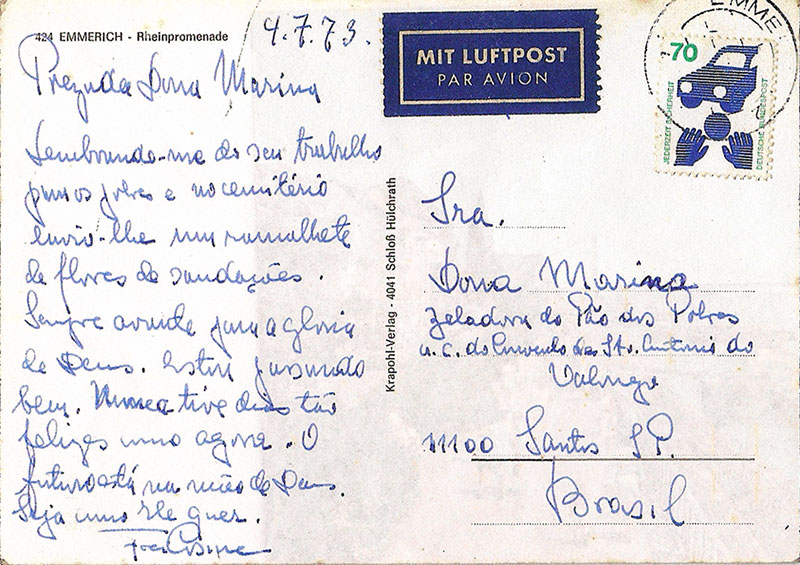 424 EMMERICH - Rheinpromenade
4.7.73.
Prezada Dona Marina
Lembrando-me do seu trabalho
para os pobres e no cemitério
envio-lhe um ramalhete
de flores de saudações.
Sempre avante para a gloria
de Deus. Estou passando
bem. Nunca tive dias tão
felizes como agora. O
futuro está na mão de Deus.
Seja como Ele quer.
Frei Cosme
Krapohl-Verlag - 4041 Schloß Hülchrath
MIT LUFTPOST
PAR AVION
EMME
70
JEDERZEIT SICHERHEIT
DEUTSCHE BUNDESPOST
Sra.
Dona Marina
Zeladora do Pão dos Pobres
a. c. do Convento de Sto. Antonio do
Valongo
11100 Santos SP.
Brasil